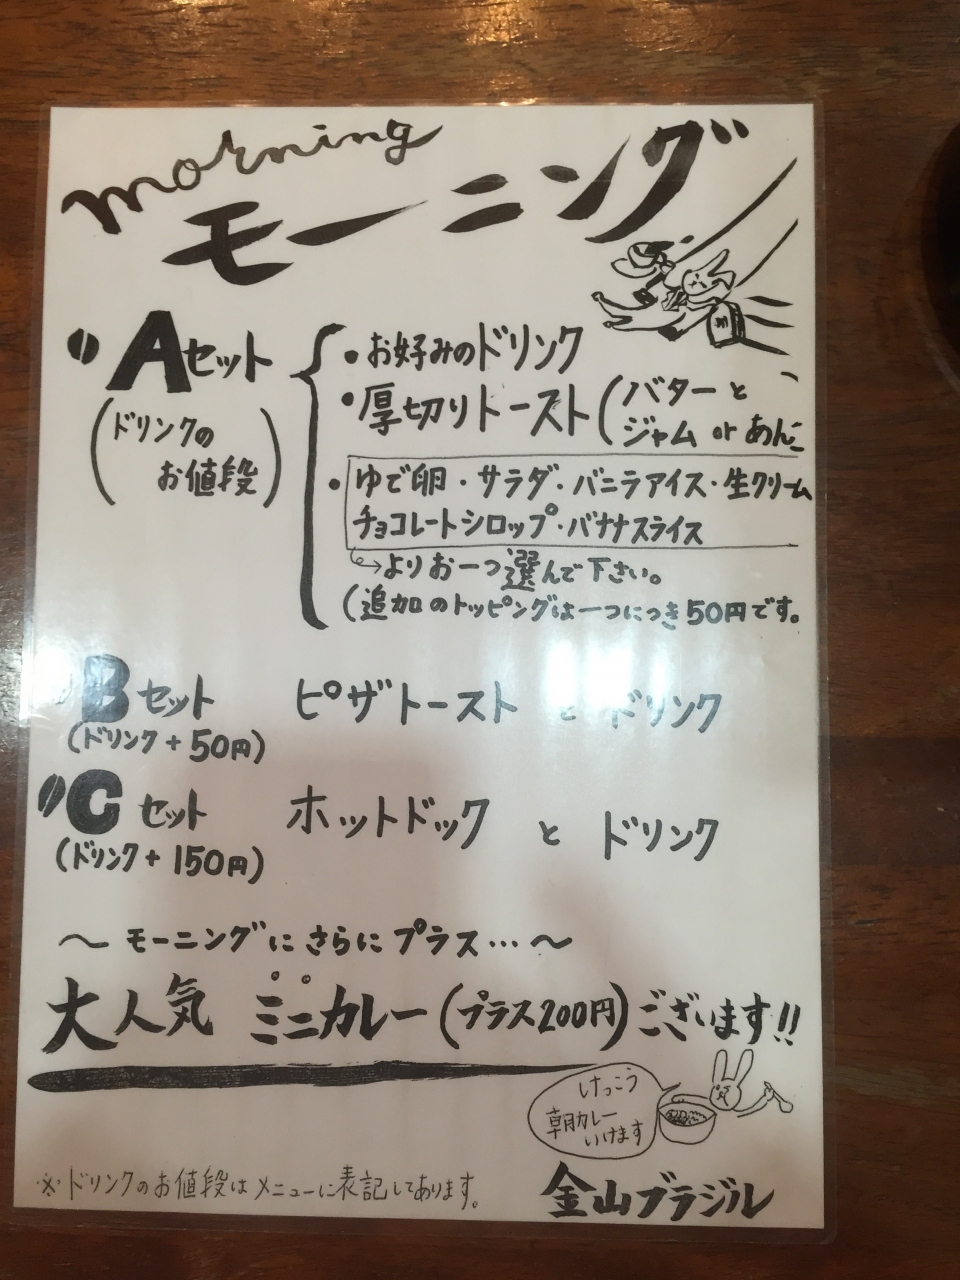 morning
モーニング
Aセット
(ドリンクの
お値段)
・お好みのドリンク
・厚切りトースト(バターと
ジャム or あんこ
・ゆで卵・サラダ・バニラアイス・生クリーム
チョコレートシロップ・バナナスライス
よりお一つ選んで下さい。
(追加のトッピングは一つにつき50円です。
Bセット ピザトースト と ドリンク
(ドリンク+50円)
Cセット ホットドック と ドリンク
(ドリンク+150円)
〜モーニングにさらにプラス…〜
大人気 ミニカレー(プラス200円)ございます!!
けっこう
朝カレー
いけます
※ドリンクのお値段はメニューに表記してあります。
金山ブラジル